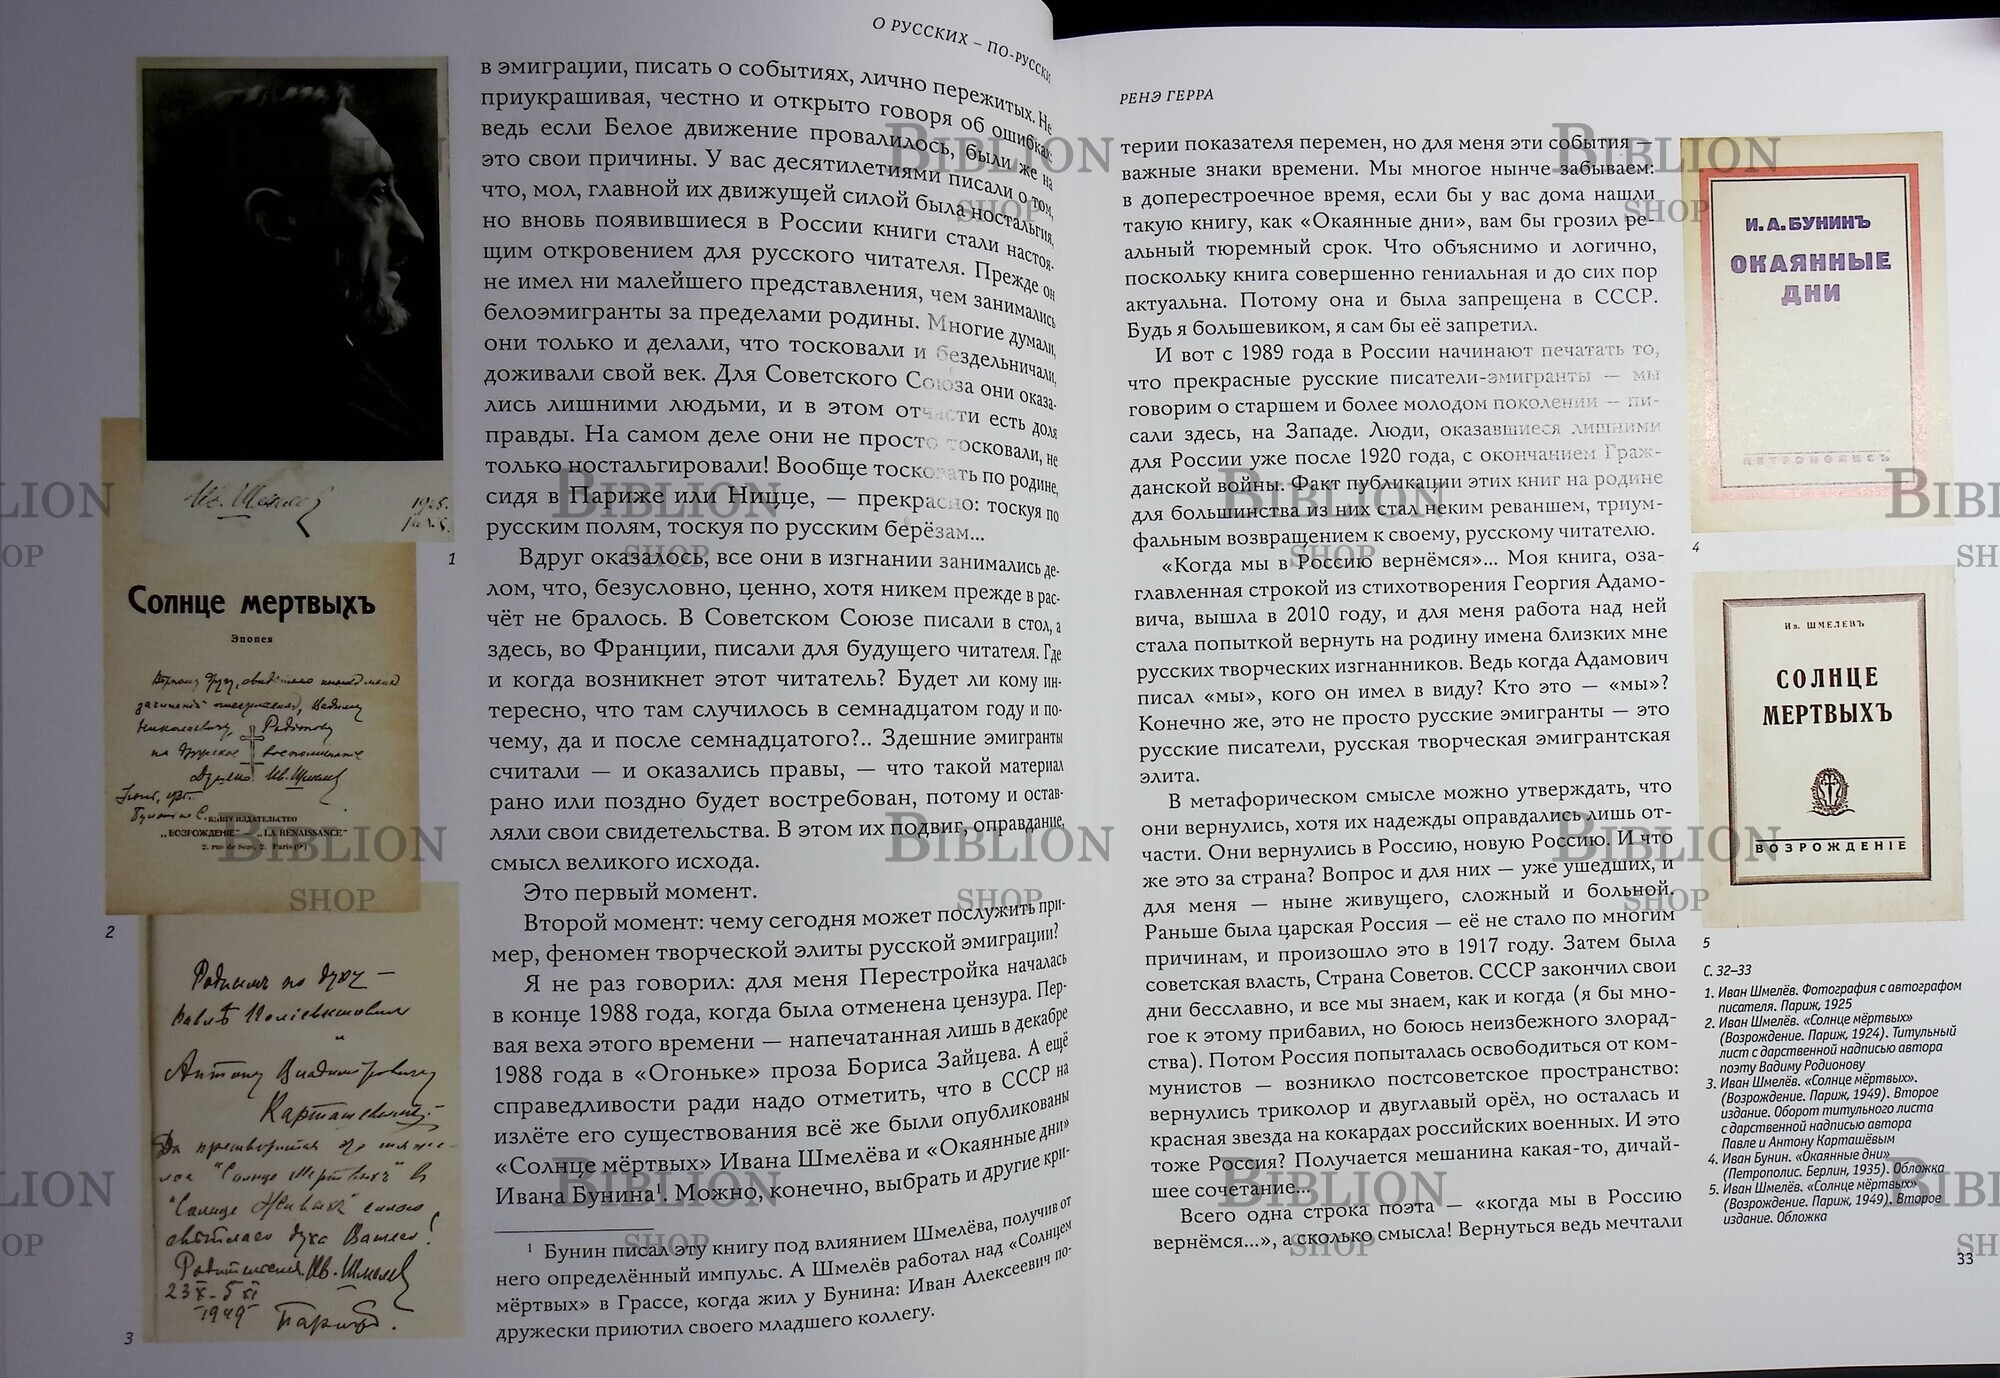 О РУССКИХ – ПО-РУССКИ
в эмиграции, писать о событиях, лично пережитых. Не
приукрашивая, честно и открыто говоря об ошибках:
ведь если Белое движение провалилось, были же на
это свои причины. У вас десятилетиями писали о том,
что, мол, главной их движущей силой была ностальгия,
но вновь появившиеся в России книги стали настоя-
щим откровением для русского читателя. Прежде он
не имел ни малейшего представления, чем занимались
белоэмигранты за пределами родины. Многие думали,
они только и делали, что тосковали и бездельничали,
доживали свой век. Для Советского Союза они оказа-
лись лишними людьми, и в этом отчасти есть доля
правды. На самом деле они не просто тосковали, не
только ностальгировали! Вообще тосковать по родине,
сидя в Париже или Ницце, — прекрасно: тоскуя по
русским полям, тоскуя по русским берёзам...
Вдруг оказалось, все они в изгнании занимались де-
лом, что, безусловно, ценно, хотя никем прежде в рас-
чёт не бралось. В Советском Союзе писали в стол, а
здесь, во Франции, писали для будущего читателя. Где
и когда возникнет этот читатель? Будет ли кому ин-
тересно, что там случилось в семнадцатом году и по-
чему, да и после семнадцатого?.. Здешние эмигранты
считали — и оказались правы, — что такой материал
рано или поздно будет востребован, потому и остав-
ляли свои свидетельства. В этом их подвиг, оправдание,
смысл великого исхода.
Это первый момент.
Второй момент: чему сегодня может послужить при-
мер, феномен творческой элиты русской эмиграции?
Я не раз говорил: для меня Перестройка началась
в конце 1988 года, когда была отменена цензура. Пер-
вая веха этого времени — напечатанная лишь в декабре
1988 года в «Огоньке» проза Бориса Зайцева. А ещё
справедливости ради надо отметить, что в СССР на
излёте его существования всё же были опубликованы
«Солнце мёртвых» Ивана Шмелёва и «Окаянные дни»
Ивана Бунина¹. Можно, конечно, выбрать и другие кри-
¹ Бунин писал эту книгу под влиянием Шмелёва, получив от
него определённый импульс. А Шмелёв работал над «Солнцем
мёртвых» в Грассе, когда жил у Бунина: Иван Алексеевич по-
дружески приютил своего младшего коллегу.
Ив. Шмелев
1925
1
Солнце мертвыхъ
Эпопея
Николаевичу, Родіонову
Ив. Шмелев
КНИГОИЗДАТЕЛЬСТВО
„ВОЗРОЖДЕНІЕ“ - „LA RENAISSANCE“
2, rue de Sèze, 2. Paris (9e)
2
Роднымъ по духу —
и
Антону Владиміровичу
Карташевымъ.
Да претворится
"Солнце Мертвыхъ" в
"Солнце Живыхъ" силою
Ив. Шмелев
1949
Парижъ.
3
РЕНЭ ГЕРРА
терии показателя перемен, но для меня эти события —
важные знаки времени. Мы многое нынче забываем:
в доперестроечное время, если бы у вас дома нашли
такую книгу, как «Окаянные дни», вам бы грозил ре-
альный тюремный срок. Что объяснимо и логично,
поскольку книга совершенно гениальная и до сих пор
актуальна. Потому она и была запрещена в СССР.
Будь я большевиком, я сам бы её запретил.
И вот с 1989 года в России начинают печатать то,
что прекрасные русские писатели-эмигранты — мы
говорим о старшем и более молодом поколении — пи-
сали здесь, на Западе. Люди, оказавшиеся лишними
для России уже после 1920 года, с окончанием Граж-
данской войны. Факт публикации этих книг на родине
для большинства из них стал неким реваншем, триум-
фальным возвращением к своему, русскому читателю.
«Когда мы в Россию вернёмся»... Моя книга, оза-
главленная строкой из стихотворения Георгия Адамо-
вича, вышла в 2010 году, и для меня работа над ней
стала попыткой вернуть на родину имена близких мне
русских творческих изгнанников. Ведь когда Адамович
писал «мы», кого он имел в виду? Кто это — «мы»?
Конечно же, это не просто русские эмигранты — это
русские писатели, русская творческая эмигрантская
элита.
В метафорическом смысле можно утверждать, что
они вернулись, хотя их надежды оправдались лишь от-
части. Они вернулись в Россию, новую Россию. И что
же это за страна? Вопрос и для них — уже ушедших, и
для меня — ныне живущего, сложный и больной.
Раньше была царская Россия — её не стало по многим
причинам, и произошло это в 1917 году. Затем была
советская власть, Страна Советов. СССР закончил свои
дни бесславно, и все мы знаем, как и когда (я бы мно-
гое к этому прибавил, но боюсь неизбежного злорад-
ства). Потом Россия попыталась освободиться от ком-
мунистов — возникло постсоветское пространство:
вернулись триколор и двуглавый орёл, но осталась и
красная звезда на кокардах российских военных. И это
тоже Россия? Получается мешанина какая-то, дичай-
шее сочетание...
Всего одна строка поэта — «когда мы в Россию
вернёмся...», а сколько смысла! Вернуться ведь мечтали
И. А. БУНИНЪ
ОКАЯННЫЕ
ДНИ
ПЕТРОПОЛИСЪ
4
Ив. ШМЕЛЕВЪ
СОЛНЦЕ
МЕРТВЫХЪ
ВОЗРОЖДЕНІЕ
5
С. 32–33
1. Иван Шмелёв. Фотография с автографом
писателя. Париж, 1925
2. Иван Шмелёв. «Солнце мёртвых»
(Возрождение. Париж, 1924). Титульный
лист с дарственной надписью автора
поэту Вадиму Родионову
3. Иван Шмелёв. «Солнце мёртвых».
(Возрождение. Париж, 1949). Второе
издание. Оборот титульного листа
с дарственной надписью автора
Павле и Антону Карташёвым
4. Иван Бунин. «Окаянные дни»
(Петрополис. Берлин, 1935). Обложка
5. Иван Шмелёв. «Солнце мёртвых»
(Возрождение. Париж, 1949). Второе
издание. Обложка
33
BIBLION
SHOP